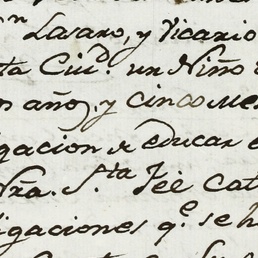 n Lasaro, y Vicario
ta Ciud. un Niño
n año, y cinco me
gacion de educar
Nra. Sta Feé Cat
igaciones qe. se h